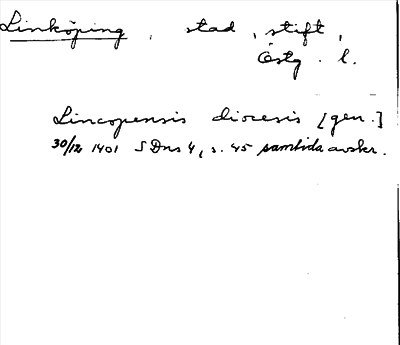 Linköping, stad, stift,
Östg. l.
Lincopensis diocesis [gen.]
30/12 1401 SDns 4, s. 45 samtida avskr.